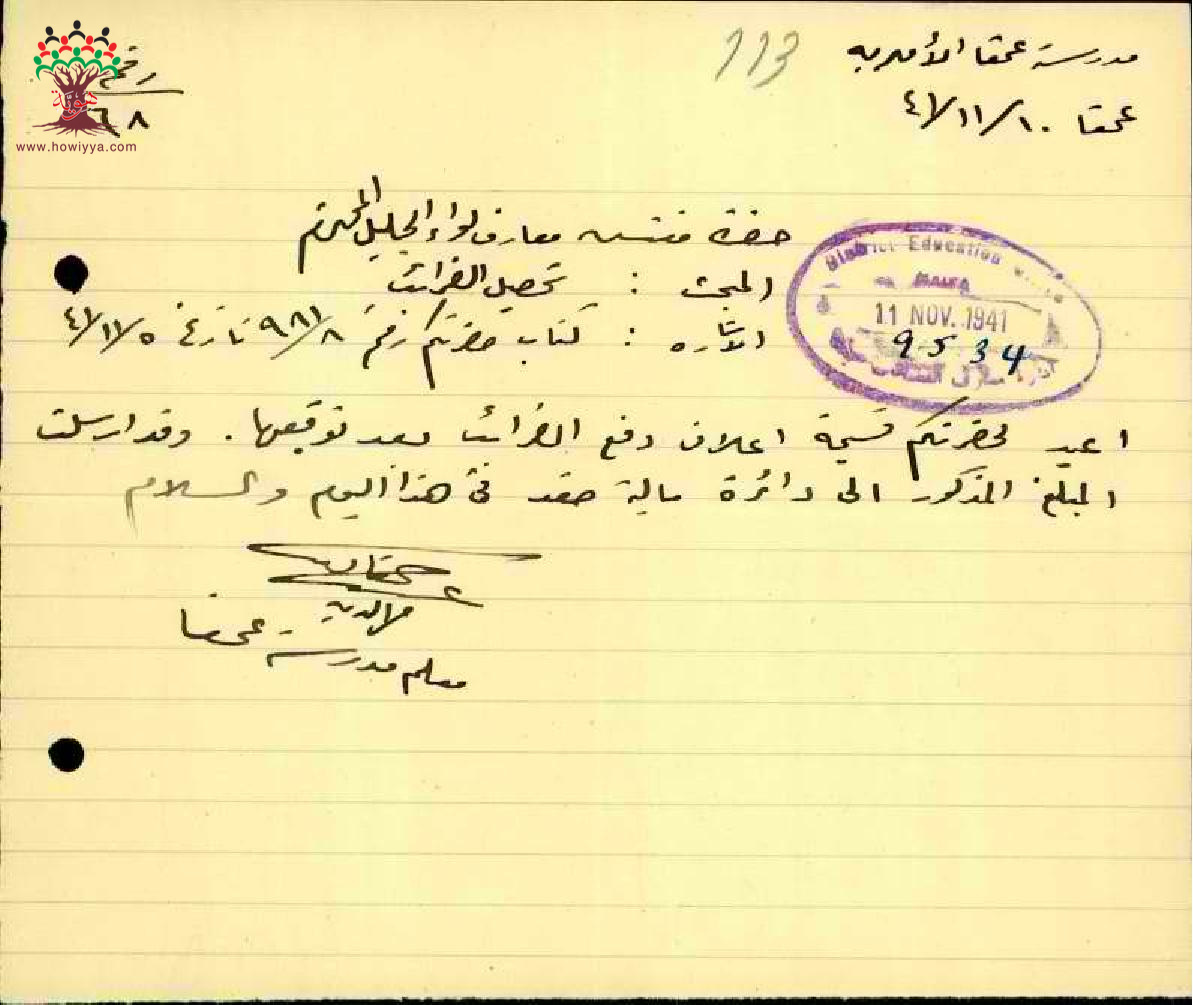 113
مدرسة عمقا الأميرية
عمقا ١٠/١١/٤١
رقم
٦٨
www.howiyya.com
حضرة مفتش معارف لواء الجليل المحترم
المبحث : تحصيل الضرائب
الاشاره : كتاب حضرتكم رقم ٩٨١/٨ تاريخ ٥/١١/٤١
District Education
HAIFA
11 NOV. 1941
9534
اعيد لحضرتكم قسيمة اعلان دفع الضرائب بعد توقيعها. وقد ارسلت
المبلغ المذكور الى دائرة مالية صفد في هذا اليوم والسلام
معلم مدرسة عمقا